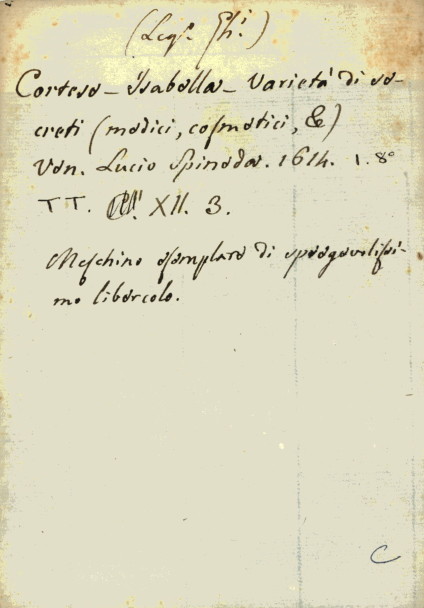 (Leg. Gh.i)
Cortese - Isabella - Varietà di se-
creti (medici, cosmetici, &)
Ven. Lucio Spineda. 1614. 1. 8°
TT. XII. 3.
Meschino esemplare di spregevolissi-
mo libercolo.
C